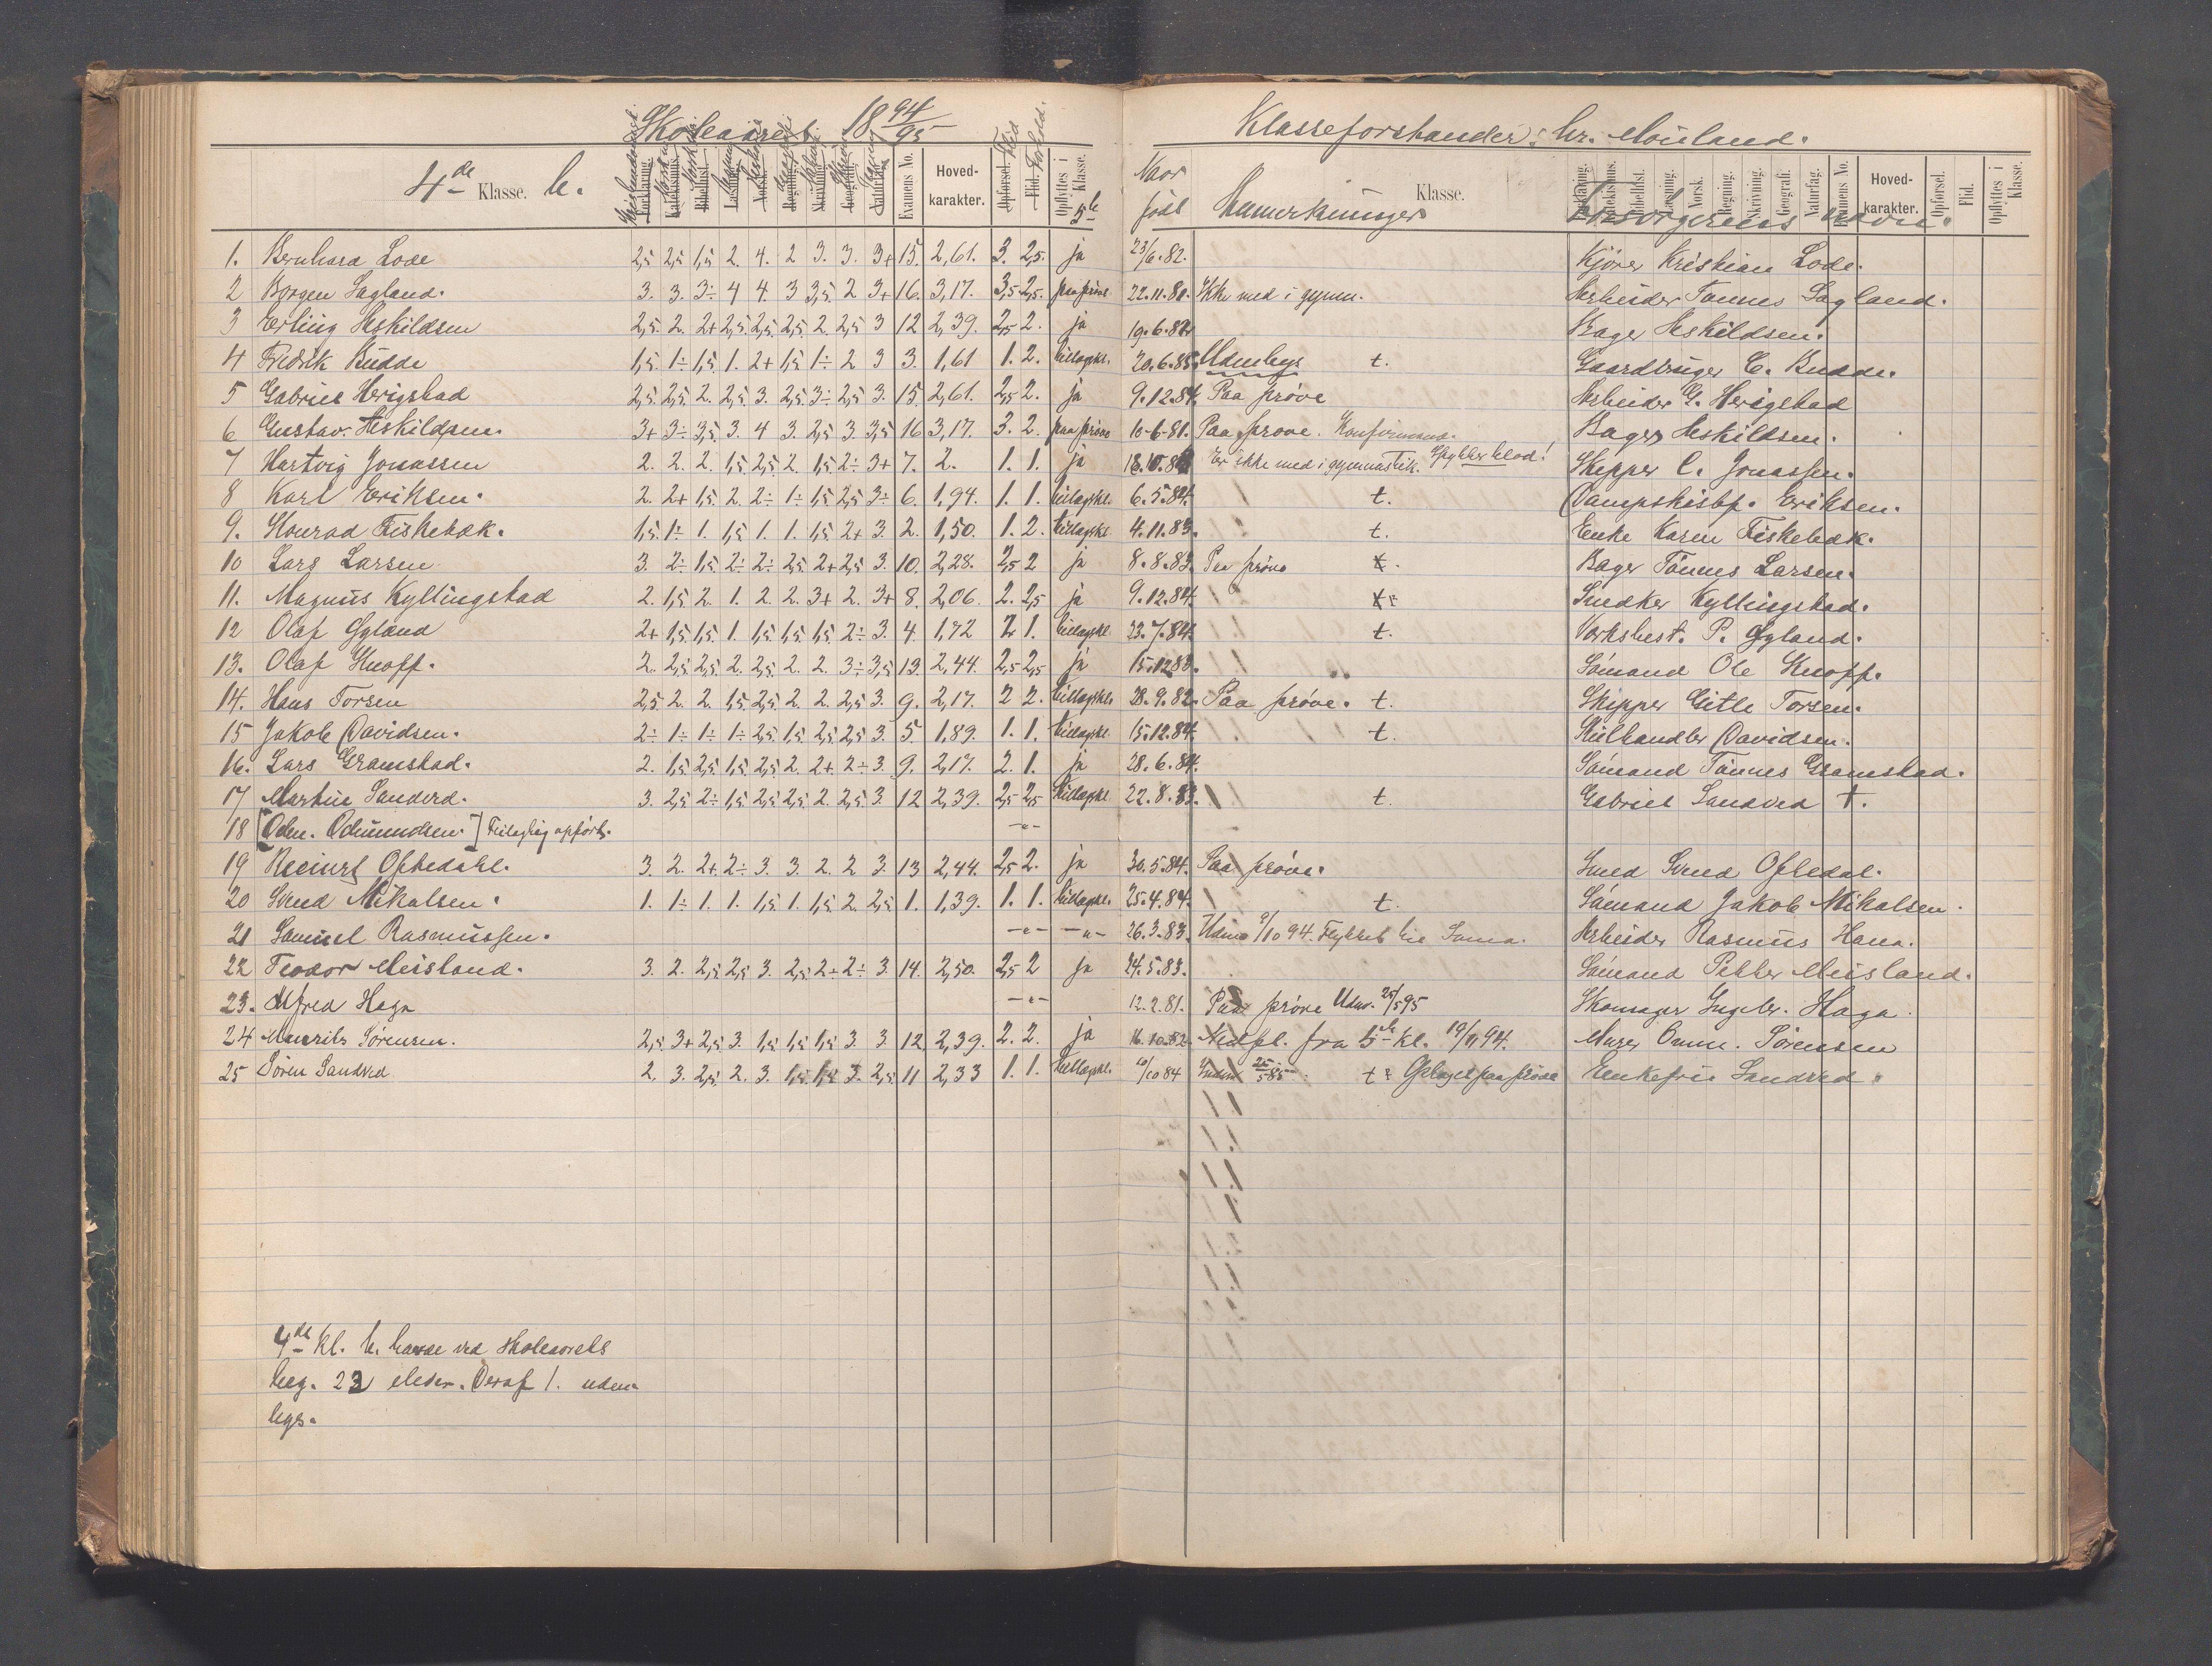 Skoleaaret 1894/95
Klasseforstander: hr. Mouland.
4de Klasse. b.
Forklaring. Katekismus. Bibelhist. Læsning. Norsk. Regning. Skrivning. Geografi. Naturfag. Examens No. Hoved-karakter. Opførsel. Flid. Opflyttes i 5b Klasse.
Naar født Anmerkninger Klasse. Forsørgerens navn.
1. Bernhard Lode 2,5 2,5 1,5 2. 4. 2 3. 3. 3+ 15. 2,61. 3. 2,5. ja 23/6.82. Kjører Kristian Lode.
2 Børgen Sagland. 3. 3. 3÷ 4 4. 3 3,5. 2 3+ 16. 3,17. 3,5 2,5. paa prøve 22.11.80. Ikke med i gymn. Arbeider Tønnes Sagland.
3 Erling Æskildsen 2,5. 2. 2+ 2,5. 2,5. 2,5. 2. 2,5 3 12 2,39. 2,5 2. ja 19.6.82. Bager Æskildsen.
4 Fredrik Budde 1,5. 1÷ 1,5. 1. 2+ 1,5 1÷ 2 3 3. 1,61 1. 2. tillægskl. 20.6.85. Udenbys t. Gaardbruger C. Budde.
5 Gabriel Herigstad 2,5. 2,5. 2. 2,5 3. 2,5 3÷ 2,5 3. 15. 2,61. 2,5 2. ja 9.12.84. Paa prøve Arbeider G. Herigstad
6 Gustav Æskildsen. 3+ 3÷ 3,5. 3. 4 3. 2,5 3. 3,5 16 3,17. 3. 2. paa prøve 10-6-81. Paa prøve. Konfirmand. Bager Æskildsen.
7 Hartvig Jonassen 2. 2. 2. 1,5 2,5 2. 1,5 2÷ 3+ 7. 2. 1. 1. ja 18.10.8 Er ikke med i gymnastik. Skipper C. Jonassen.
8 Karl Eriksen. 2. 2+ 1,5 2. 2÷ 1÷ 1,5 2,5 3÷ 6. 1,94. 1. 1. tillægskl. 6.5.84. t. Dampskibsf. Eriksen.
9. Konrad Fiskebæk. 1,5. 1÷ 1. 1,5 1. 1. 1,5 2+ 3. 2. 1,50. 1. 2. tillægskl. 4.11.83. t. Enke Karen Fiskebæk.
10 Lars Larsen 3. 2÷ 1,5 2÷ 2÷ 2,5 2+ 2,5 3. 10. 2,28. 2,5 2 ja 8.8.83. Paa prøve t. Bager Tønnes Larsen.
11. Magnus Kyllingstad 2. 1,5 2. 1. 2. 2. 3+ 2. 3+ 8. 2,06. 2. 2,5 ja 9.12.84. t. Snedker Kyllingstad.
12 Olaf Gyland 2+ 1,5 1,5 1. 1,5 1,5 1,5 2÷ 3. 4. 1,72 2 1. tillægskl. 23.7.84. t. Værksbest. P. Gyland.
13. Olaf Knoff. 2. 2,5. 2,5. 2. 2,5. 2. 2. 3÷ 3,5 13. 2,44. 2,5 2,5 ja 15.12.83. Sømand Ole Knoff.
14. Hans Torsen 2,5 2. 2. 1,5. 2,5. 2. 2. 2,5 3. 9. 2,17. 2 2. tillægskl. 28.9.82. Paa prøve. t. Skipper Gitle Torsen.
15 Jakob Davidsen. 2÷ 1÷ 1÷ 1÷ 2,5 1,5 2,5 2,5 3. 5. 1,89. 1. 1. tillægskl. 15.12.84. t. Kulhandler Davidsen.
16. Lars Gramstad. 2. 1,5 2,5 1,5. 2,5 2. 2+ 2÷ 3. 9. 2,17. 2. 1. ja 28.6.84. Sømand Tønnes Gramstad.
17 Martin Sandved. 3. 2,5 2÷ 1,5 2,5 2,5 2. 2,5 3. 12 2,39. 2,5 2,5 tillægskl. 22.8.83. t. Gabriel Sandved t.
18 [Odm. Odmundsen.] Feilagtig opført. -"-
19 Reinert Oftedahl. 3. 2. 2+ 2÷ 3. 3. 2. 2 3. 13 2,44. 2,5 2. ja 30.5.84. Paa prøve. Smed Svend Oftedal.
20 Svend Mikalsen. 1. 1÷ 1. 1. 1,5 1. 1,5 2. 2,5 1. 1,39. 1. 1. tillægskl. 25.4.84. t. Sømand Jakob Mikalsen.
21 Samuel Rasmussen. -"- -"- 26.3.83. Udm. 9/10 94. Flyttet til Arbeider Rasmus Hana.
22 Teodor Meisland. 3. 2. 2,5 2,5 3. 2,5 2+ 2÷ 3. 14. 2,50. 2,5 2 ja 24.5.83. Sømand Petter Meisland.
23. Alfred Haga -"- 12.2.81. Paa prøve Udm. 25/5 95 Skomager Ingebr. Haga.
24 Maurits Sørensen. 2,5 3+ 2,5 3. 1,5 1,5 1,5 3. 3 12. 2,39. 2. 2. ja 16.10.82. Nedfl. fra 5te kl. 19/9 94. Murer Omm. Sørensen
25 Søren Sandved 2. 3. 2,5 2. 3. 1,5 1,5 3. 2,5 11 2,33 1. 1. tillægskl. 10/10 84 Indm. 25/5 85 t Enkefru Sandved.
4de kl. b. havde ved skoleaarets
beg. 22 elever. Deraf 1. uden-
bys.